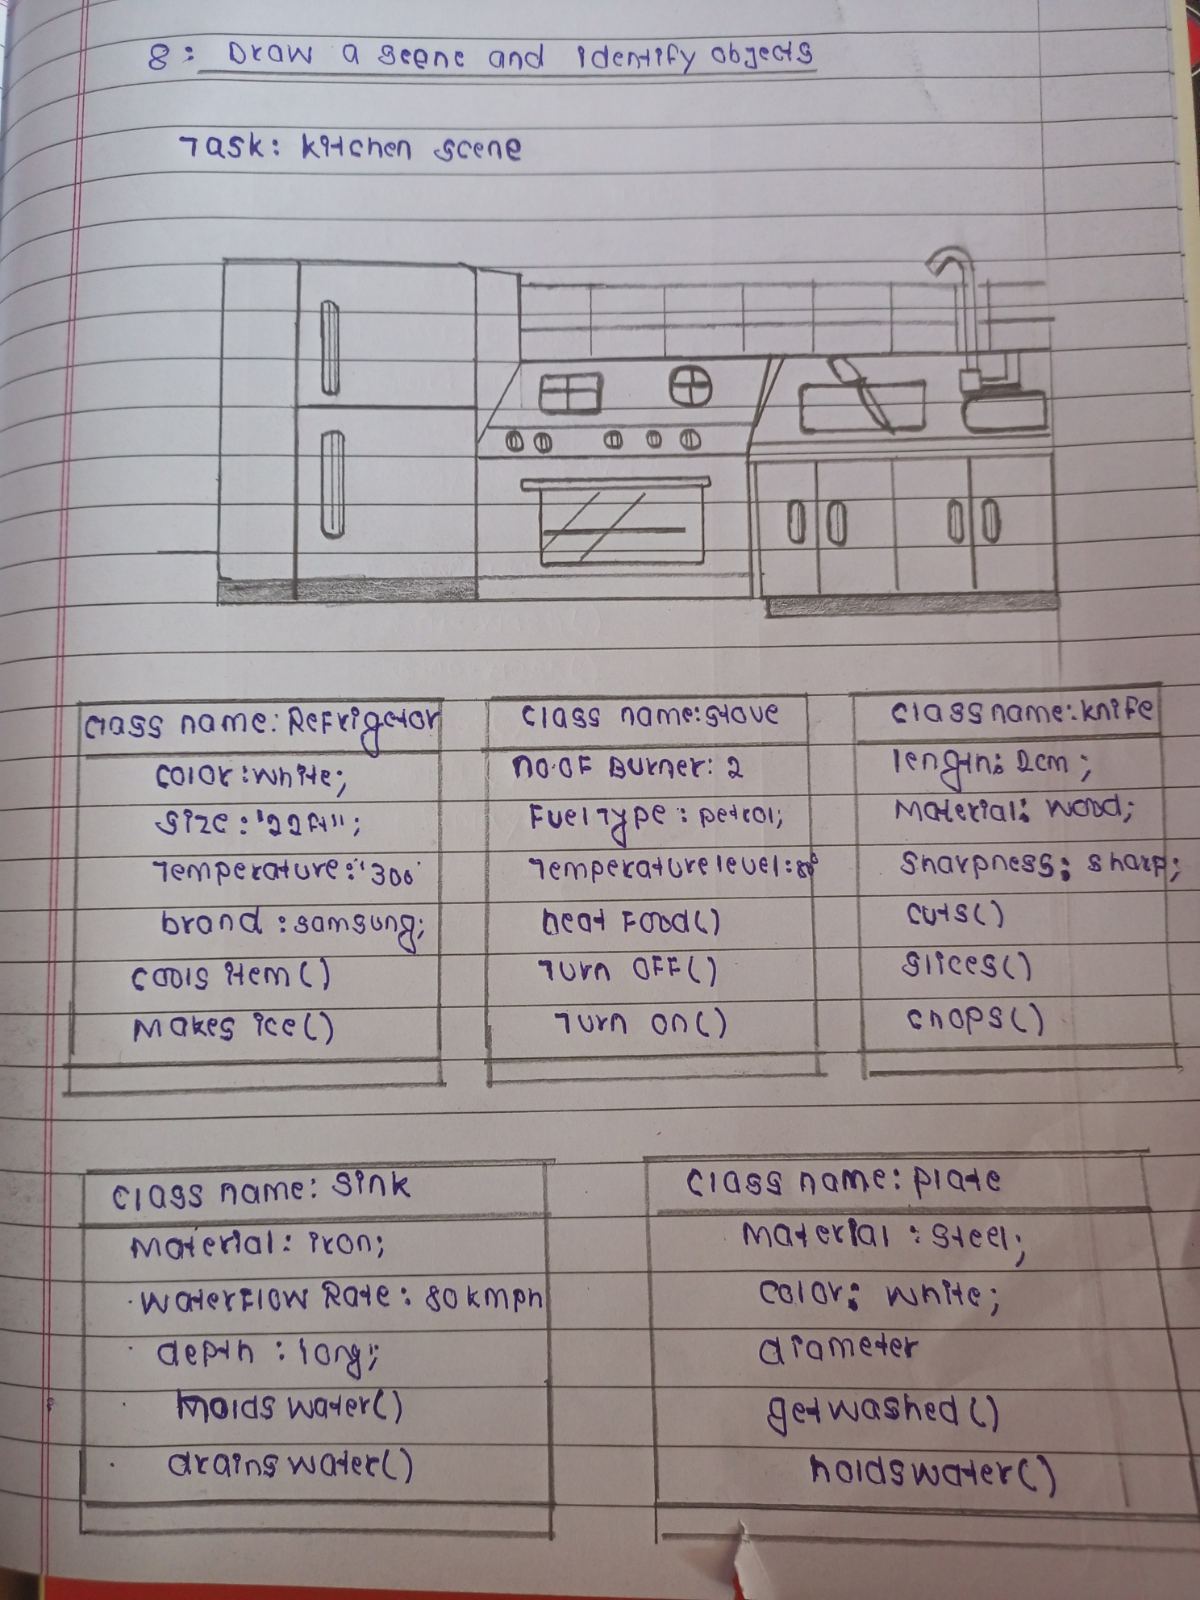 8: Draw a scene and identify objects
Task: kitchen scene
class name: Refrigetor
color: white;
size: "22ft";
Temperature: '300
brand: samsung;
cools item()
Makes ice()
class name: stove
No. of Burner: 2
Fuel Type: petrol;
Temperature level: 80°
heat Food()
Turn OFF()
Turn on()
class name: knife
length: 2cm;
Material: wood;
sharpness: sharp;
cuts()
slices()
chops()
class name: sink
Material: iron;
waterflow Rate: 80kmph
depth: long;
holds water()
drains water()
class name: plate
Material: steel;
color: white;
diameter
get washed()
holds water()